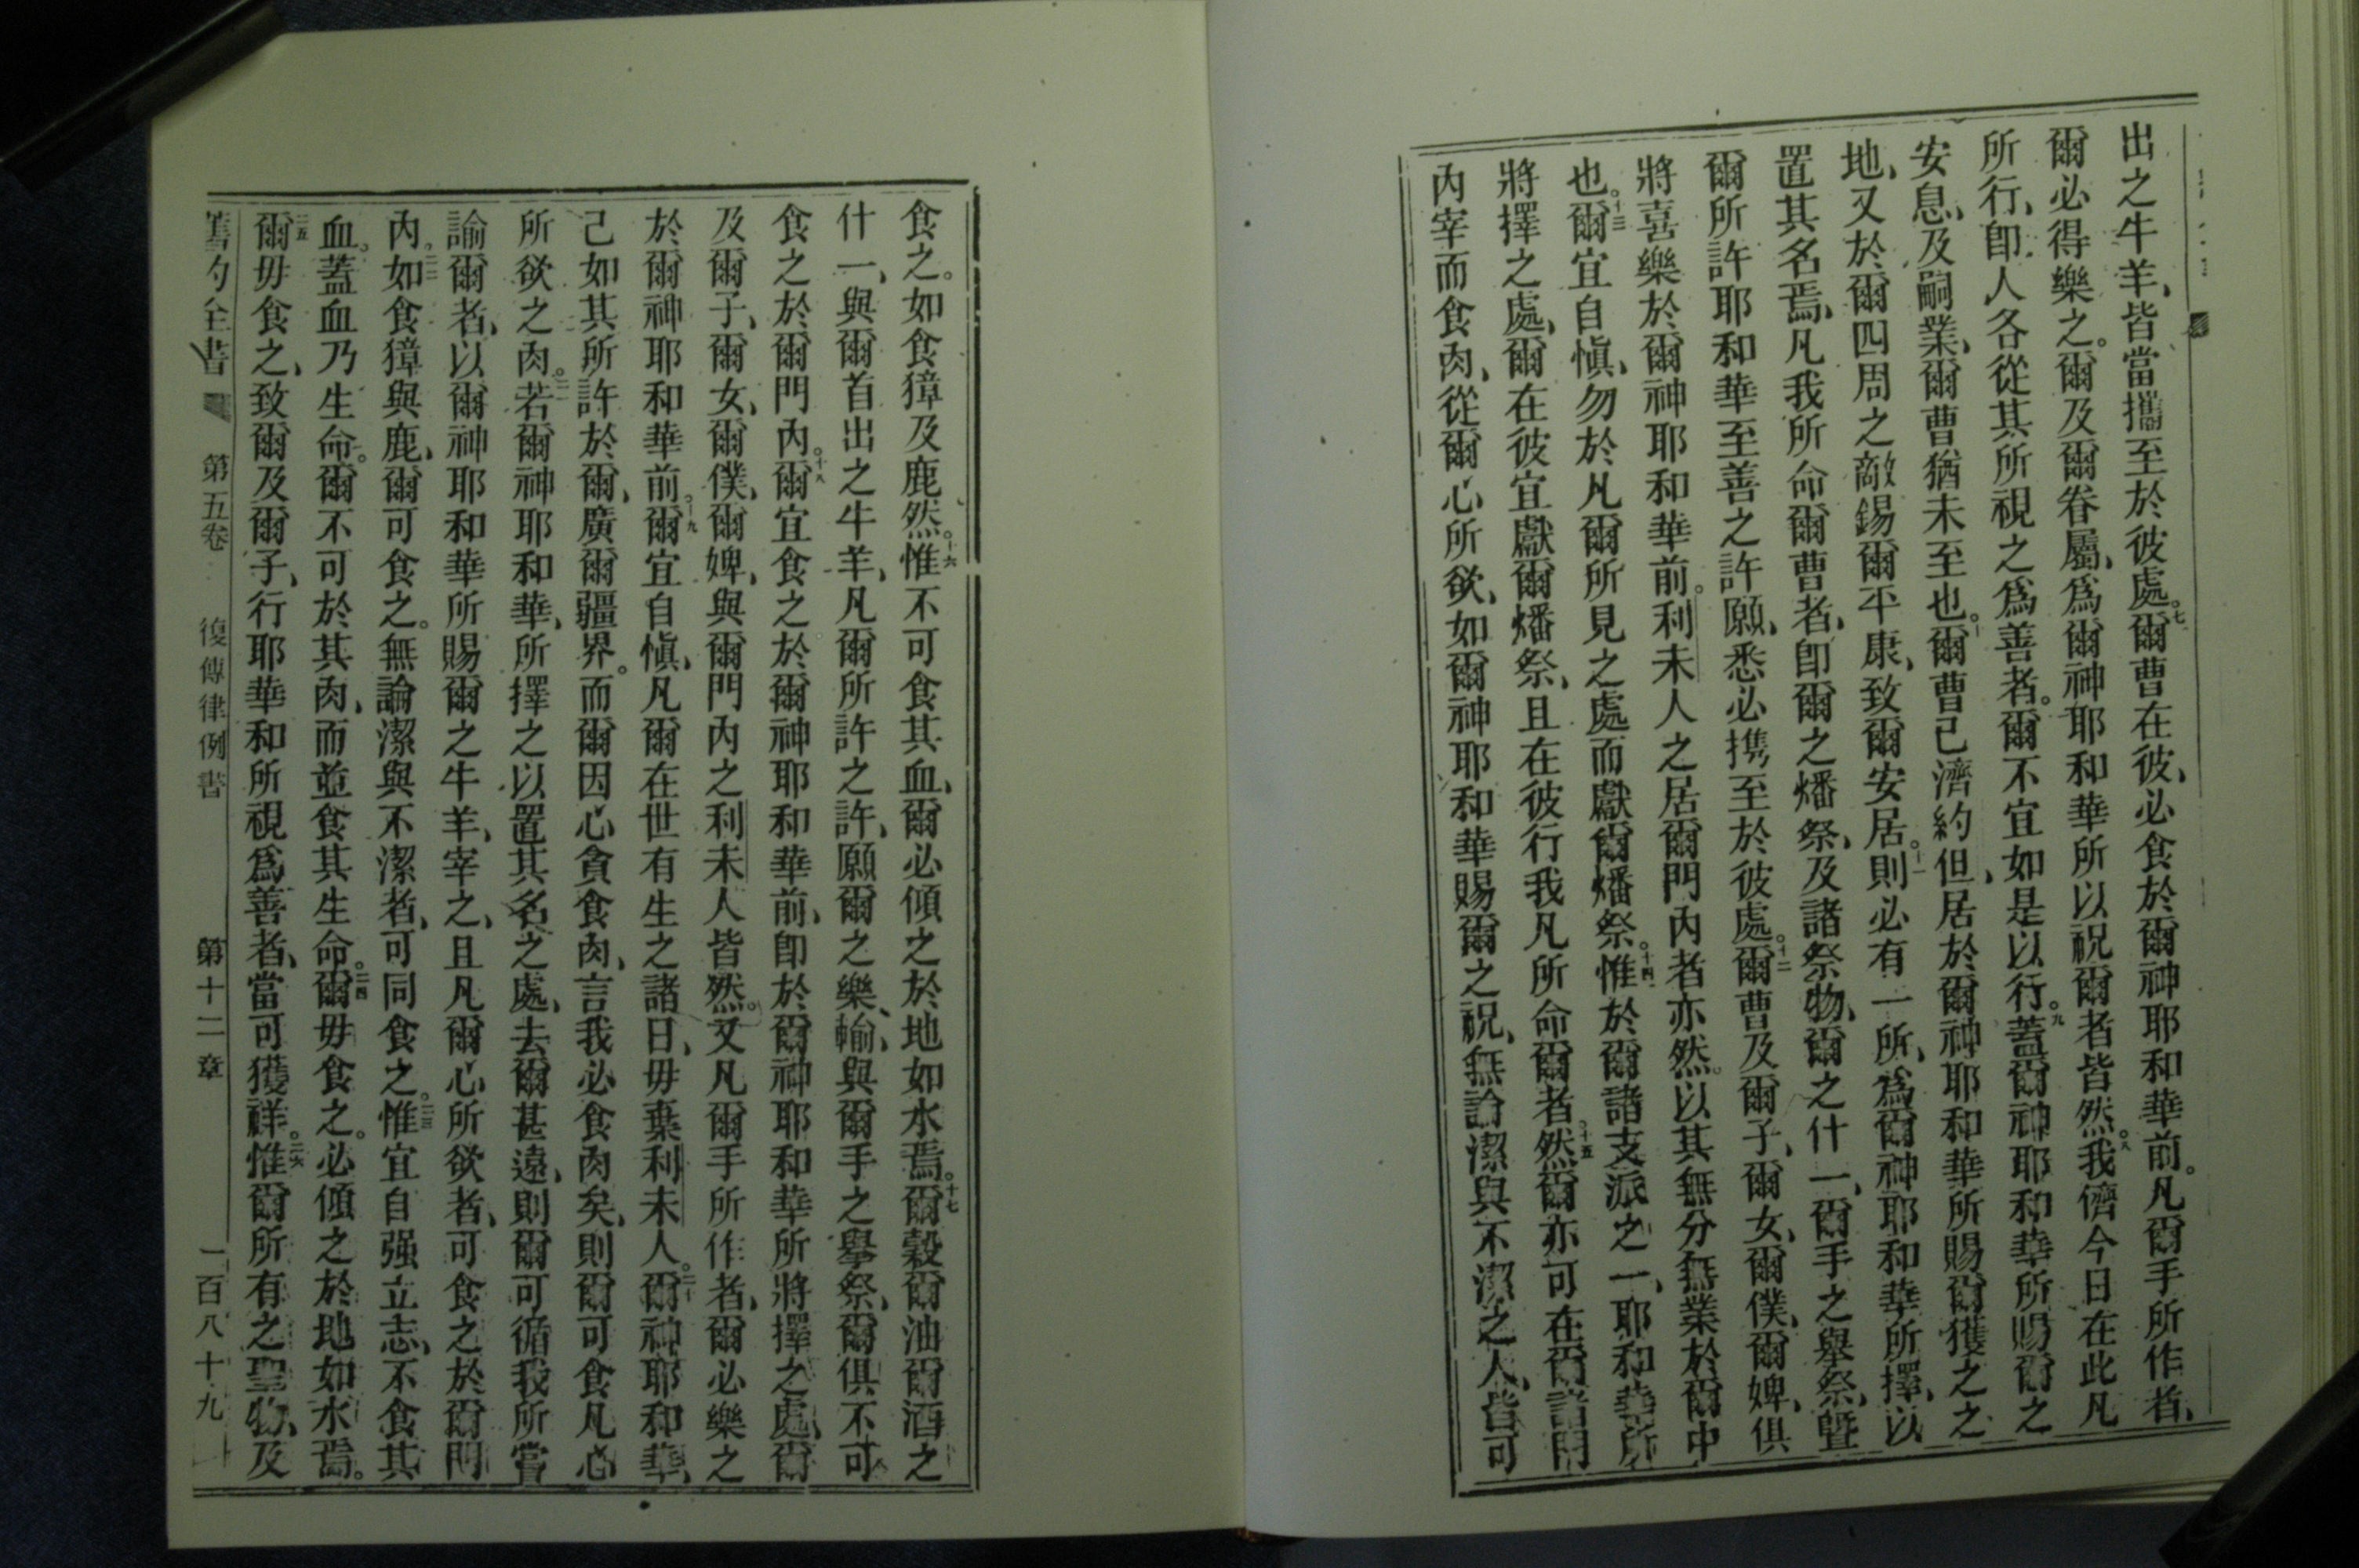 出之牛羊、皆當攜至於彼處。七爾曹在彼、必食於爾神耶和華前。凡爾手所作者、
爾必得樂之。爾及爾眷屬、爲爾神耶和華所以祝爾者皆然。八我儕今日在此凡
所行、卽人各從其所視之爲善者。爾不宜如是以行。九蓋爾神耶和華所賜爾之
安息、及嗣業、爾曹猶未至也。十爾曹已濟約但、居於爾神耶和華所賜爾獲之之
地、又於爾四周之敵錫爾平康、致爾安居。十一則必有一所、爲爾神耶和華所擇、以
置其名焉、凡我所命爾曹者、卽爾之燔祭、及諸祭物、爾之什一、爾手之舉祭、曁
爾所許耶和華至善之許願、悉必携至於彼處。十二爾曹及爾子、爾女、爾僕、爾婢、俱
將喜樂於爾神耶和華前。利未人之居爾門內者亦然。以其無分無業於爾中
也。十三爾宜自愼、勿於凡爾所見之處而獻爾燔祭。十四惟於爾諸支派之一、耶和華所
將擇之處、爾在彼宜獻爾燔祭、且在彼行我凡所命爾者。十五然爾亦可在爾諸門
內宰而食肉、從爾心所欲、如爾神耶和華賜爾之祝、無論潔與不潔之人、皆可
食之。如食獐及鹿然。十六惟不可食其血、爾必傾之於地如水焉。十七爾穀爾油爾酒之
什一、與爾首出之牛羊、凡爾所許之許願、爾之樂輸、與爾手之舉祭、爾俱不可
食之於爾門內。十八爾宜食之於爾神耶和華前、卽於爾神耶和華所將擇之處、爾
及爾子、爾女、爾僕、爾婢、與爾門內之利未人皆然。又凡爾手所作者、爾必樂之
於爾神耶和華前。十九爾宜自愼、凡爾在世有生之諸日、毋棄利未人。二十爾神耶和華、
己如其所許於爾、廣爾疆界。而爾因心貪食肉、言我必食肉矣、則爾可食凡心
所欲之肉。二一若爾神耶和華、所擇之以置其名之處、去爾甚遠、則爾可循我所嘗
諭爾者、以爾神耶和華所賜爾之牛羊、宰之、且凡爾心所欲者、可食之於爾門
內。二二如食獐與鹿、爾可食之。無論潔與不潔者、可同食之。二三惟宜自强立志、不食其
血。蓋血乃生命。爾不可於其肉、而並食其生命。二四爾毋食之。必傾之於地如水焉。
二五爾毋食之、致爾及爾子、行耶華和所視爲善者、當可獲祥。二六惟爾所有之聖物、及
舊約全書 第五卷 復傳律例書 第十二章 二百八十九